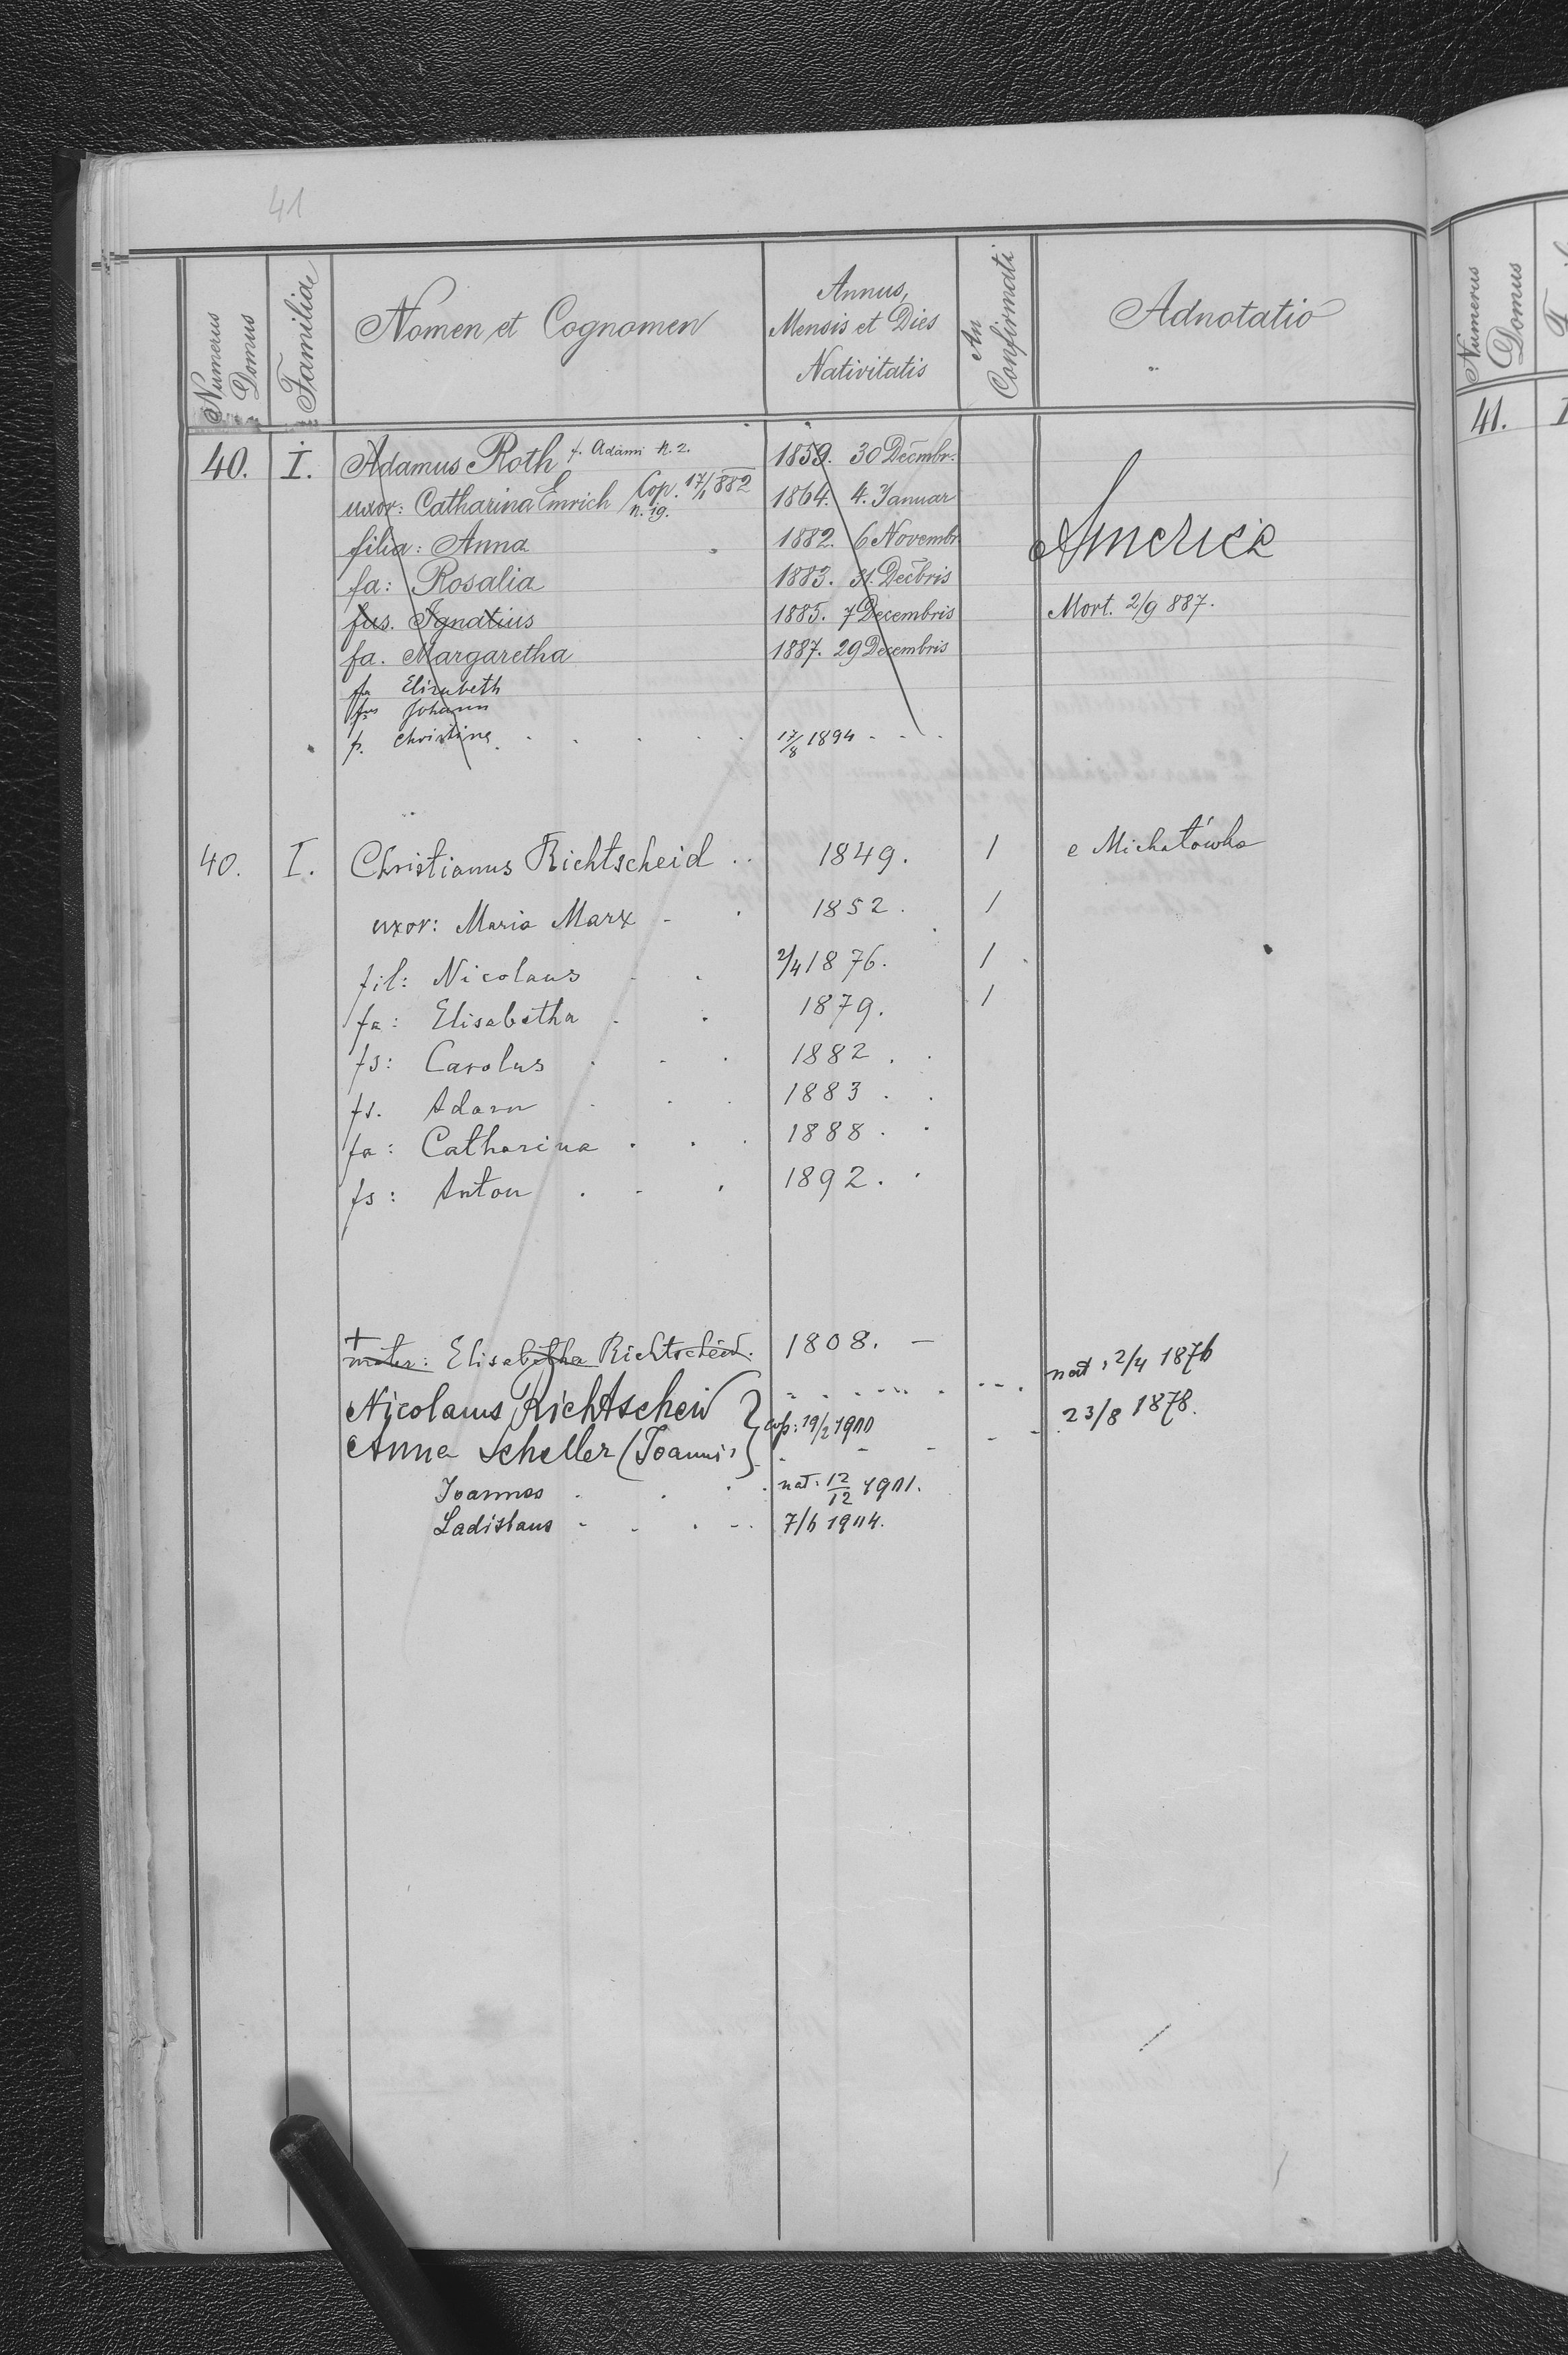 41
Numerus Domus Familia Nomen et Cognomen Annus, Mensis et Dies Nativitatis An Confirmati Adnotatio
40. I. Adamus Roth f. Adami n. 2. 1859. 30 Decmbr.
uxor: Catharina Emrich Cop. 17/1 882 n. 19. 1864. 4. Januar
America
filia: Anna 1882. 6 Novembr
fa: Rosalia 1883. 31. Decbris
fus. Ignatius 1885. 7 Decembris Mort. 2/9 887.
fa. Margaretha 1887. 29 Decembris
fa Elisabeth
fus Johann
f. Christina 17/8 1894
40. I. Christianus Richtscheid 1849. 1 e Michałówka
uxor: Maria Marx 1852. 1
fil: Nicolaus 2/4 1876. 1
fa: Elisabetha 1879. 1
fs: Carolus 1882.
fs. Adam 1883.
fa: Catharina 1888.
fs: Anton 1892.
+
mater: Elisabetha Richtscheid. 1808. —
Nicolaus Richtscheid } cop: 19/2 1900 nat: 2/4 1876
Anna Scheller (Joannis) 23/8 1878.
Joannes nat: 12/12 1901.
Ladislaus 7/6 1904.
Numerus Domus
41. I